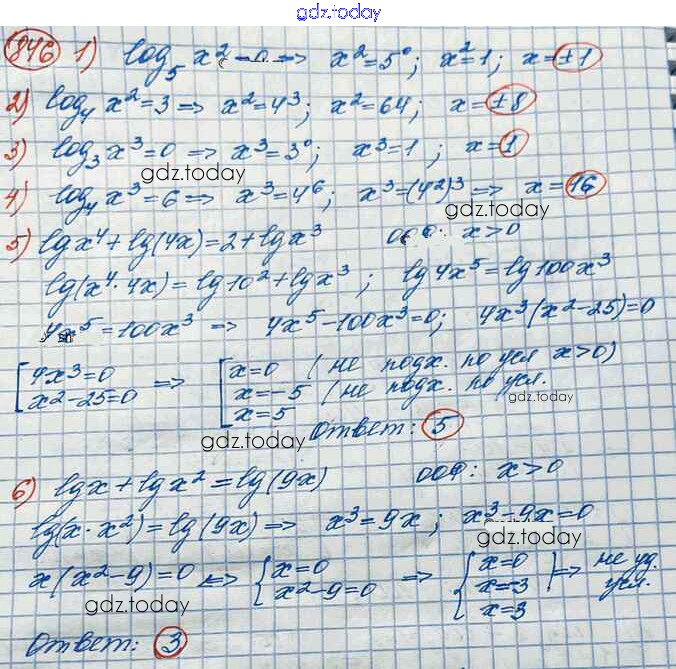 gdz.today
846 1) log₅ x² = 0 => x² = 5⁰; x² = 1; x = ±1
2) log₄ x² = 3 => x² = 4³; x² = 64; x = ±8
3) log₃ x³ = 0 => x³ = 3⁰; x³ = 1; x = 1
gdz.today
4) log₄ x³ = 6 => x³ = 4⁶; x³ = (4²)³ => x = 16
gdz.today
5) lg x⁴ + lg(4x) = 2 + lg x³ ООФ: x > 0
lg(x⁴·4x) = lg 10² + lg x³; lg 4x⁵ = lg 100x³
4x⁵ = 100x³ => 4x⁵ - 100x³ = 0; 4x³(x² - 25) = 0
[4x³ = 0 => [x = 0 (не подх. по усл x > 0)
x² - 25 = 0 x = -5 (не подх. по усл.
x = 5
gdz.today
gdz.today
Ответ: 5
6) lg x + lg x² = lg(9x) ООФ: x > 0
lg(x·x²) = lg(9x) => x³ = 9x; x³ - 9x = 0
gdz.today
x(x² - 9) = 0 <=> {x = 0 => {x = 0 } => не уд.
x² - 9 = 0 x = -3 усл.
x = 3
gdz.today
Ответ: 3